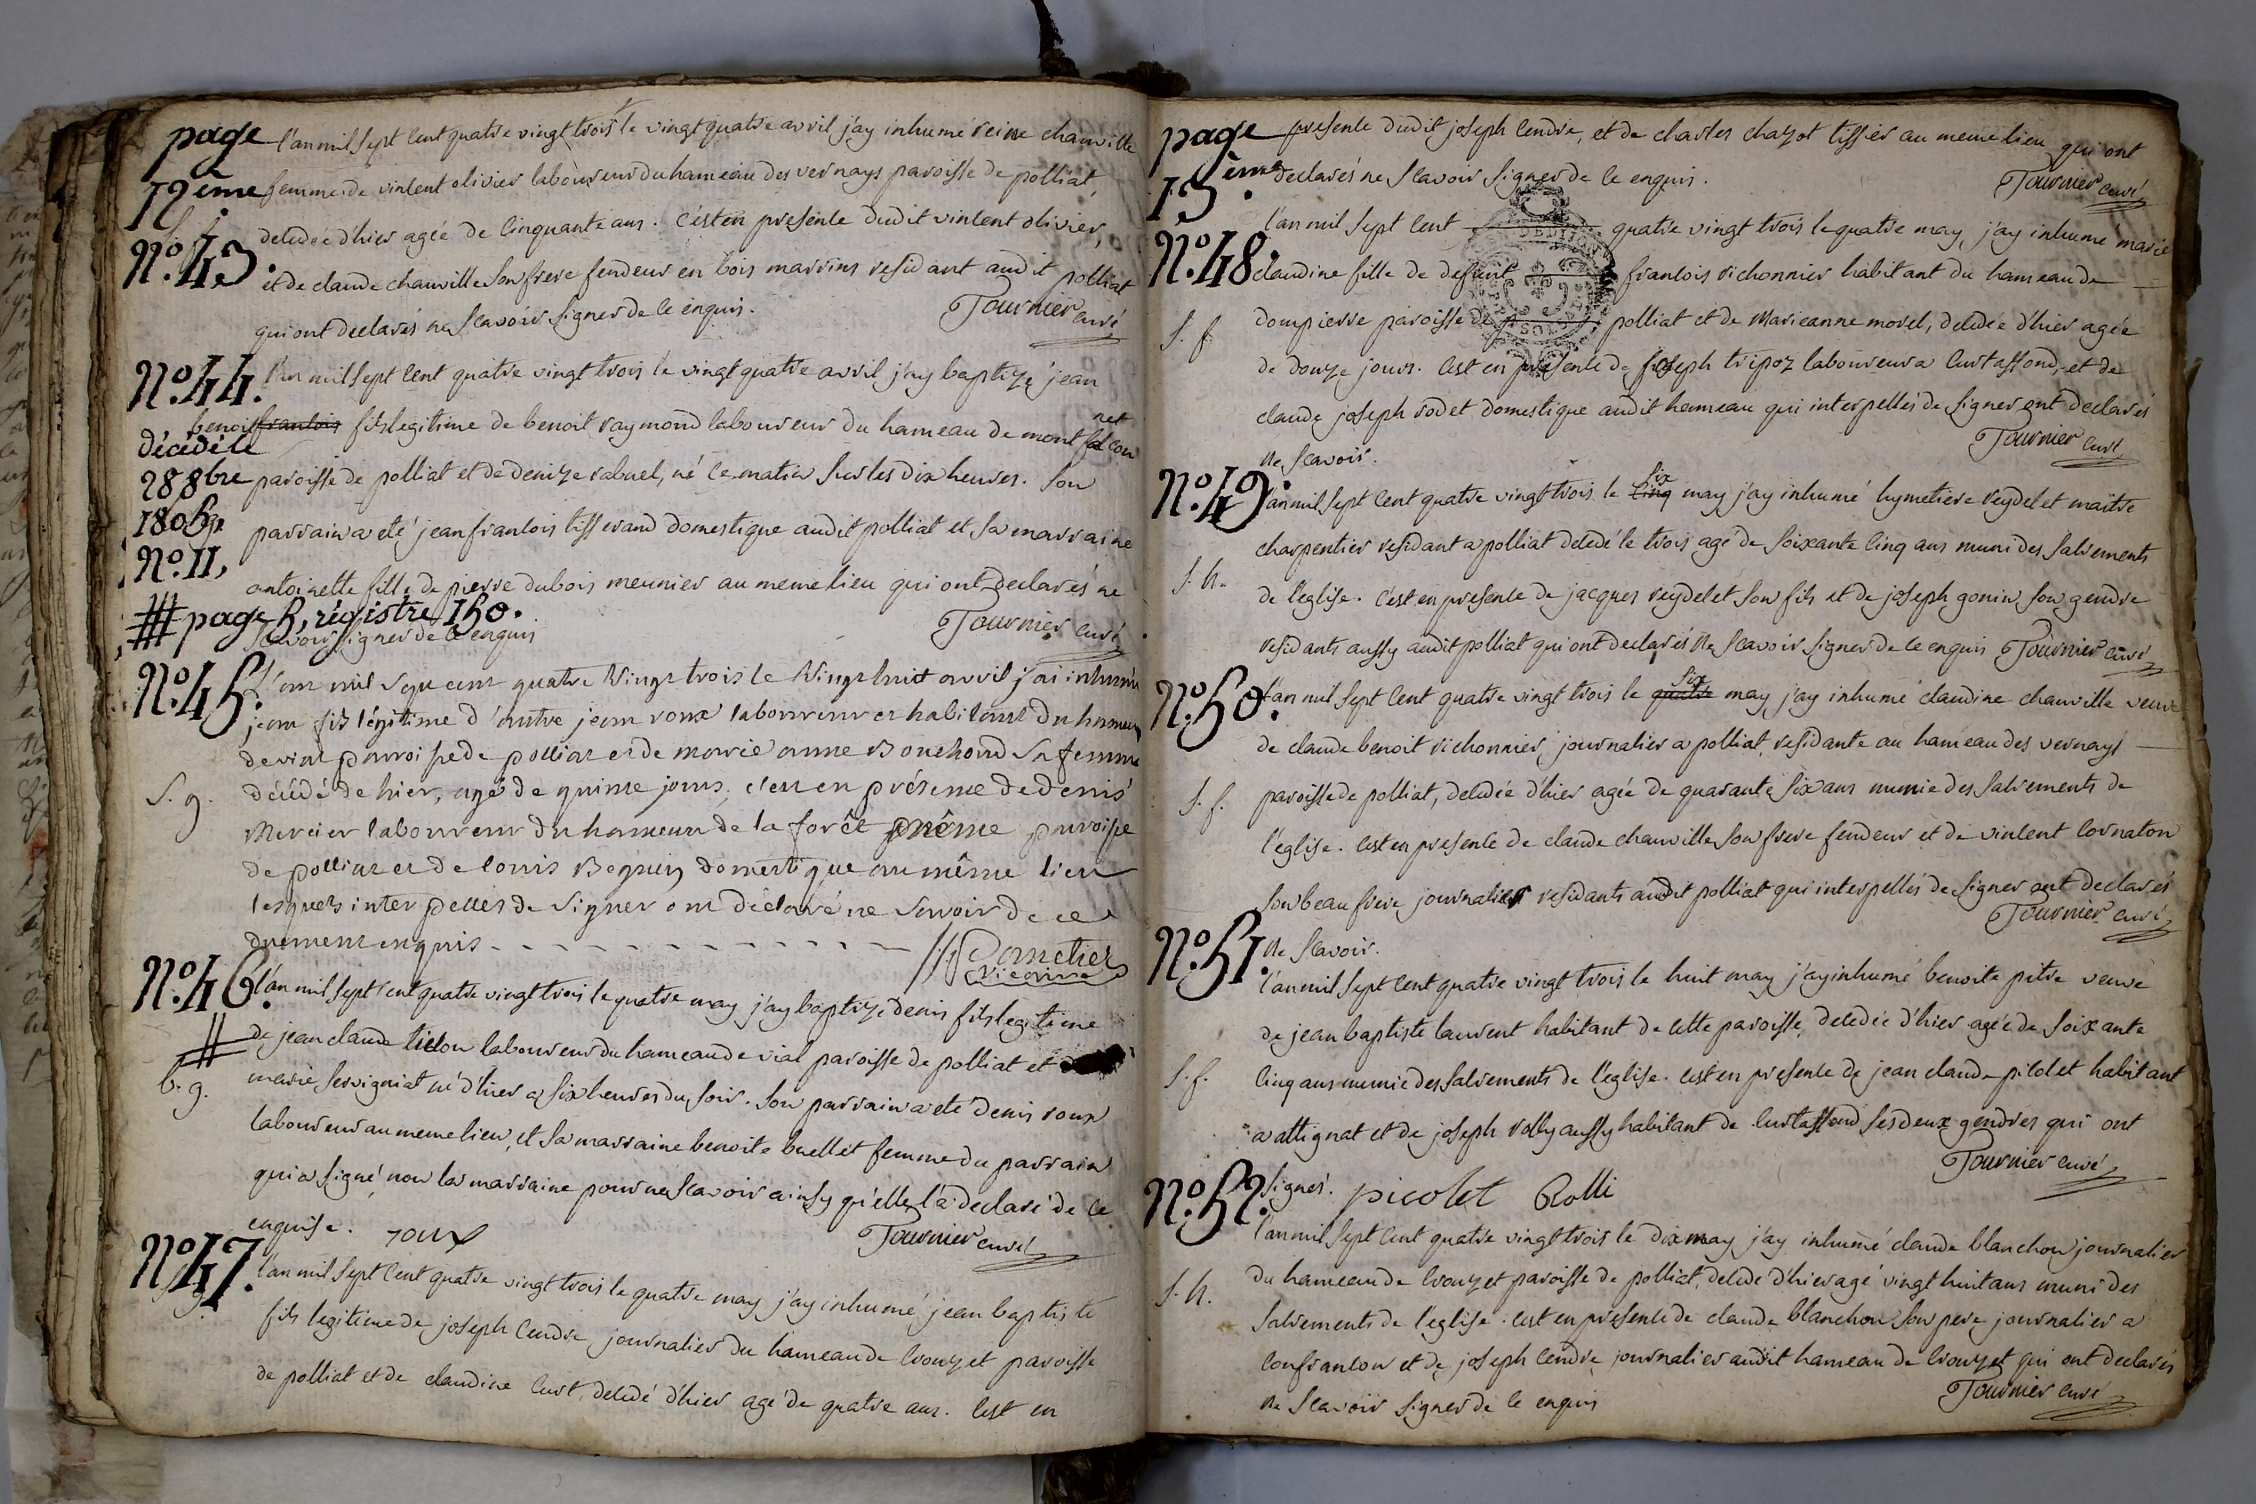 page
12ème
l'an mil sept cent quatre vingt trois le vingt quatre avril j'ay inhumé reine chanville
femme de vincent olivier laboureur du hameau des vernays paroisse de polliat,
N.º 43.
decedée d'hier agée de cinquante ans. c'est en presence dudit vincent olivier,
et de claude chanville son frere fendeur en bois marrins residant audit polliat
qui ont declarés ne scavoir signer de ce enquis. Tournier curé
N.º 44.
l'an mil sept cent quatre vingt trois le vingt quatre avril j'ay baptizé jean
benoit francois fils legitime de benoit raymond laboureur du hameau de mont falcon
net
décédé le
28 8bre
180
N.º 11,
# page 5, régistre 150.
paroisse de polliat et de denize rabuel, né ce matin sur les dix heures. son
parrain a eté jean francois tisserand domestique audit polliat et sa marraine
antoinette fille de pierre dubois meunier au meme lieu qui ont declarés ne
scavoir signer de ce enquis Tournier curé
N.º 45.
l'an mil sept cent quatre vingt trois le vingt huit avril j'ai inhumé
jean fils légitime d'autre jean roux laboureur et habitant du hameau
de vial parroisse de polliat et de marie anne Bouchard sa femme
S. g.
décédé de hier, agé de quinze jours, c'est en présence de denis
Mercier laboureur du hameau de la forêt même parroisse
de polliat et de louis Beguin domestique au même lieu
lesquels interpellés de signer ont déclaré ne savoir de ce
duement enquis - - - Dometier
vicaire
N.º 46.
l'an mil sept cent quatre vingt trois le quatre may j'ay baptizé denis fils legitime
#
b. g.
de jean claude tillon laboureur du hameau de vial paroisse de polliat et
marie servignat né d'hier a six heures du soir. son parrain a eté denis roux
laboureur au meme lieu, et sa marraine benoite buellet femme du parrain
qui a signé non la marraine pour ne scavoir ainsy qu'elle l'a declaré de ce
enquise. roux Tournier curé
N.º 47.
S. g.
l'an mil sept cent quatre vingt trois le quatre may j'ay inhumé jean baptiste
fils legitime de joseph cendre journalier du hameau de crouzet paroisse
de polliat et de claudine curt decedé d'hier agé de quatre ans. c'est en
page
13ème.
presence dudit joseph cendre, et de charles chazot tissier au meme lieu qui ont
declarés ne scavoir signer de ce enquis. Tournier curé
N.º 48.
l'an mil sept cent quatre vingt trois le quatre may j'ay inhumé marie
claudine fille de defunt francois richonnier habitant du hameau de
S. f.
dompierre paroisse de polliat et de Marieanne morel, decedée d'hier agée
de douze jours. c'est en presence de joseph tripoz laboureur a curtaffond, et de
claude joseph rodet domestique audit hameau qui interpellés de signer ont declarés
ne scavoir. Tournier curé
N.º 49.
l'an mil sept cent quatre vingt trois le cinq six may j'ay inhumé hymetiere reydelet maitre
charpentier residant a polliat decedé le trois agé de soixante cinq ans muni des sacrements
S. h.
de l'eglise. c'est en presence de jacques reydelet son fils et de joseph gonin son gendre
residants aussy audit polliat qui ont declarés ne scavoir signer de ce enquis Tournier curé
N.º 50.
l'an mil sept cent quatre vingt trois le quatre six may j'ay inhumé claudine chanville veuve
de claude benoit richonnier journalier a polliat, residante au hameau des vernays
S. f.
paroisse de polliat, decedée d'hier agée de quarante six ans munie des sacrements de
l'eglise. c'est en presence de claude chanville son frere fendeur et de vincent cornaton
son beau frere journalier residants audit polliat qui interpellés de signer ont declarés
ne scavoir. Tournier curé
N.º 51.
l'an mil sept cent quatre vingt trois le huit may j'ay inhumé benoite pitre veuve
de jean baptiste laurent habitant de cette paroisse, decedée d'hier agée de soixante
S. f.
cinq ans munie des sacrements de l'eglise. c'est en presence de jean claude picolet habitant
a attignat et de joseph rolly aussy habitant de curtaffond ses deux gendres qui ont
signés. picolet Rolli Tournier curé
N.º 52.
l'an mil sept cent quatre vingt trois le dix may j'ay inhumé claude blanchon journalier
S. h.
du hameau de crouzet paroisse de polliat, decedé d'hier agé vingt huit ans muni des
sacrements de l'eglise. c'est en presence de claude blanchon son pere journalier a
confrancon et de joseph cendre journalier audit hameau de crouzet qui ont declarés
ne scavoir signer de ce enquis Tournier curé